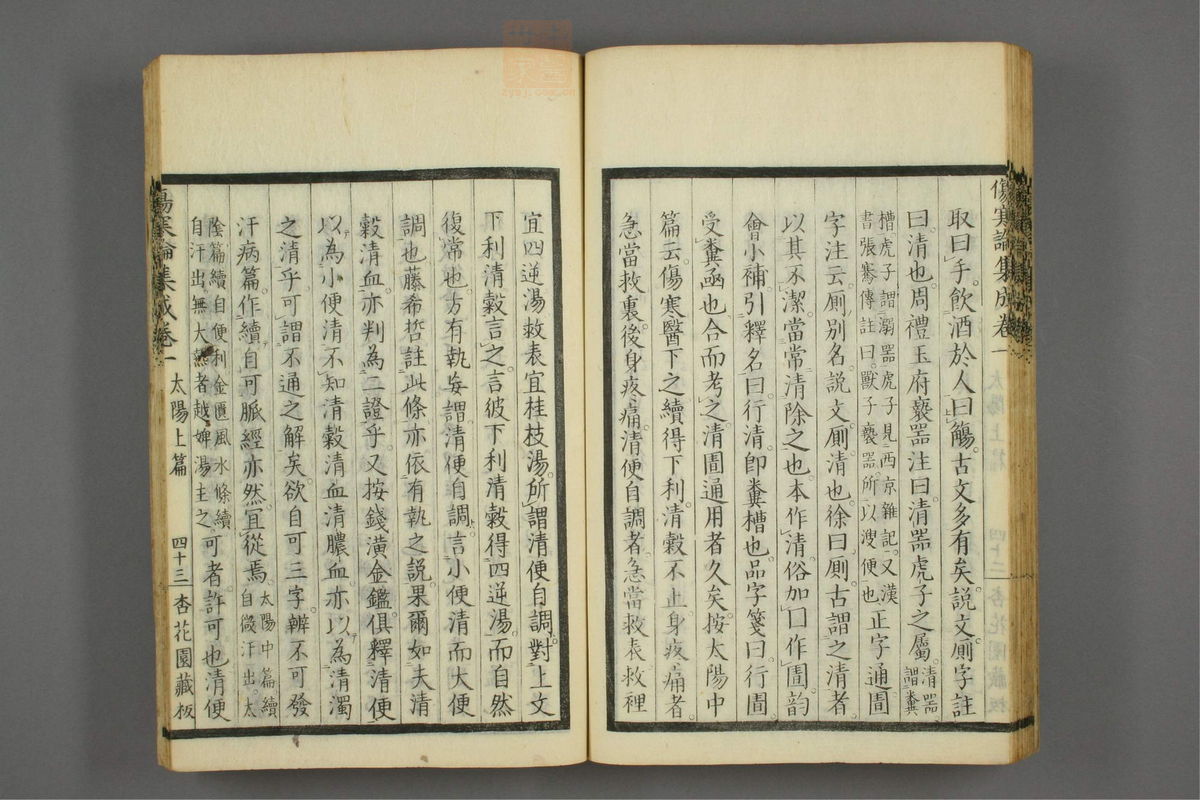 傷寒論集成卷一
取曰手飲酒於人曰觴古文多有矣說文厠字註
曰清也周禮玉府褻器注曰清器虎子之屬清器謂糞
槽虎子謂溺器虎子見西京雜記又漢書張騫傳註曰獸子褻器所以溲便也正字通圊
字注云厠別名說文厠清也徐曰厠古謂之清者
以其不潔當常清除之也本作清俗加囗作圊韵
會小補引釋名曰行清卽糞槽也品字箋曰行圊
受糞函也合而考之清圊通用者久矣按太陽中
篇云傷寒醫下之續得下利清穀不止身疼痛者
急當救裏後身疼痛清便自調者急當救表救裡
宜四逆湯救表宜桂枝湯所謂清便自調對上文
下利清穀言之言彼下利清穀得四逆湯而自然
復常也方有執妄謂清便自調言小便清而大便
調也藤希哲註此條亦依有執之說果爾如夫清
穀清血亦判為二證乎又按錢潢金鑑俱釋清便
以為小便清不知清穀清血清膿血亦以為清濁
之清乎可謂不通之解矣欲自可三字辨不可發
汗病篇作續自可脈經亦然宜從焉太陽中篇續自微汗出太
陰篇續自便利金匱風水條續自汗出無大熱者越婢湯主之可者許可也清便
傷寒論集成卷一
太陽上篇
四十三
杏花園藏板